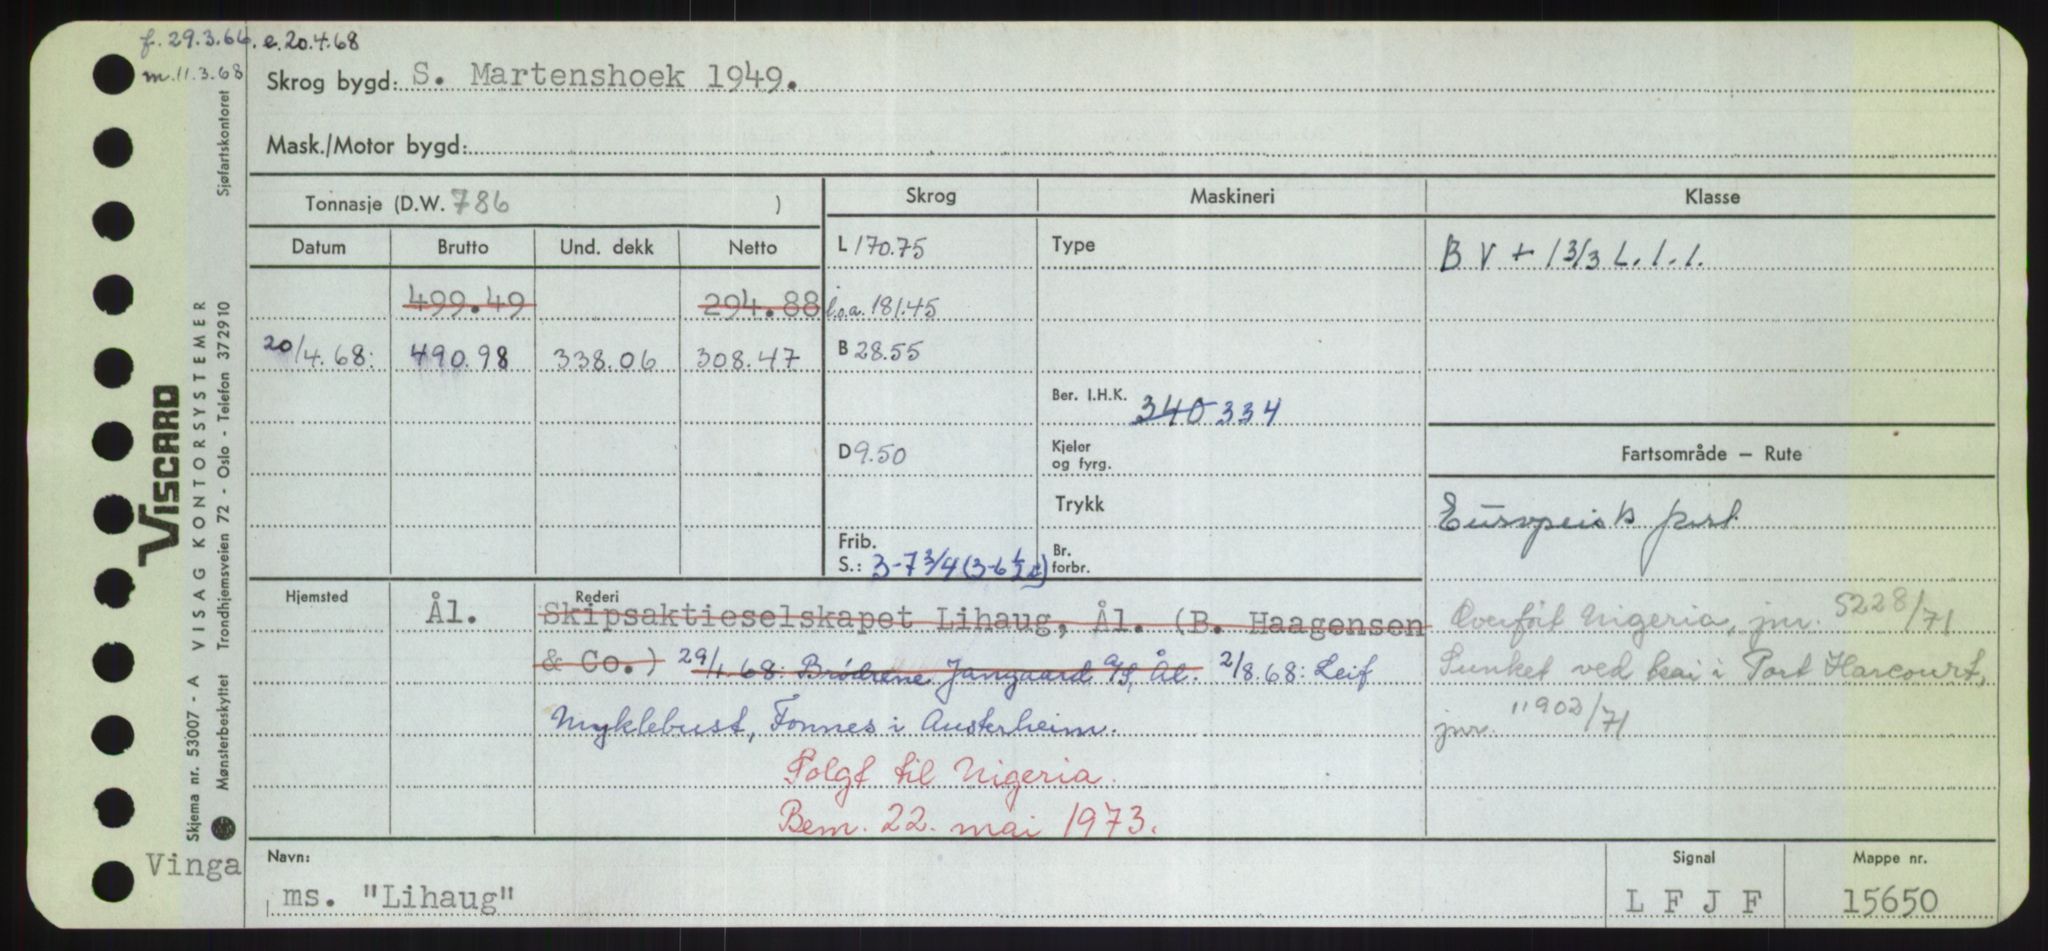 f. 29.3.66. e.20.4.68
m. 11.3.68
Skrog bygd: S. Martenshoek 1949.
Mask./Motor bygd:
Sjøfartskontoret
VISCARD
VISAG KONTORSYSTEMER
Skjema nr. 53007 - A
Mønsterbeskyttet Trondhjemsveien 72 - Oslo - Telefon 372910
Tonnasje (D.W. 786 )
Datum Brutto Und. dekk Netto
499.49 294.88
20/4.68: 490.98 338.06 308.47
Skrog
L 170.75
l.o.a. 181.45
B 28.55
D 9.50
Frib.
S.: 3-7 3/4 (3-6 1/2)
Maskineri
Type
Ber. I.H.K. 340 334
Kjeler
og fyrg.
Trykk
Br.
forbr.
Klasse
B V + 1 3/3 L. 1. 1.
Fartsområde — Rute
Europeisk fart
Overført Nigeria, jnr. 5228/71
Sunket ved kai i Port Harcourt,
jnr. 11902/71
Hjemsted
Ål.
Rederi
Skipsaktieselskapet Lihaug, Ål. (B. Haagensen
& Co.) 29/1.68: Brødrene Jangaard A/S, Ål. 2/8.68: Leif
Myklebust, Fonnes i Austerheim.
Solgt til Nigeria.
Bem. 22. mai 1973.
Vinga
Navn:
ms. "Lihaug"
Signal
L F J F
Mappe nr.
15650